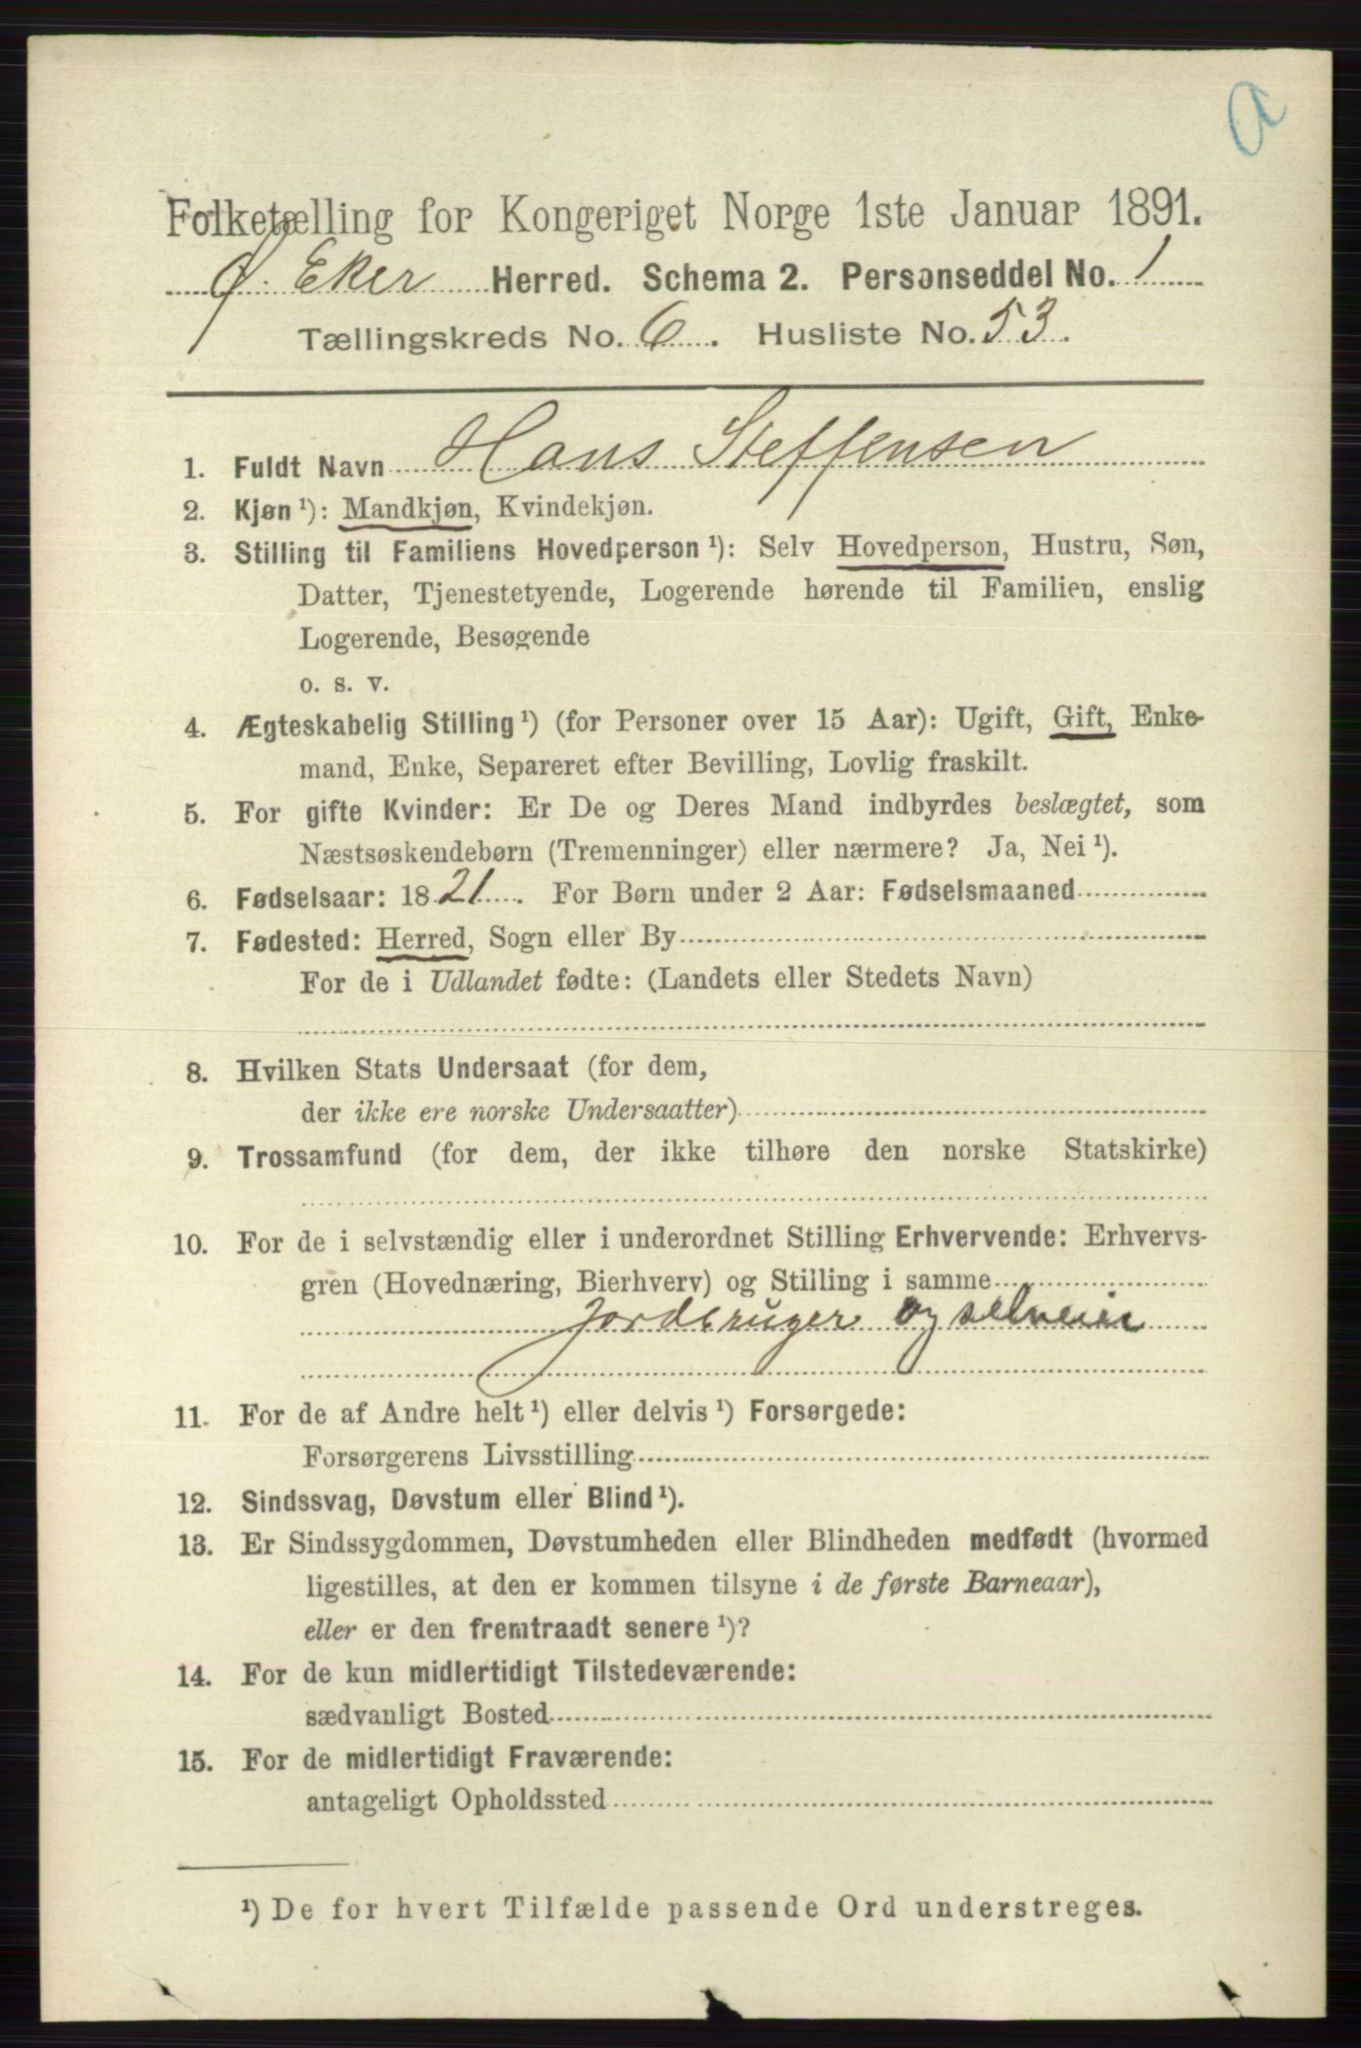 a
Folketælling for Kongeriget Norge 1ste Januar 1891.
Ø. Eker Herred. Schema 2. Personseddel No. 1
Tællingskreds No. 6. Husliste No. 53.
1. Fuldt Navn Hans Steffensen
2. Kjøn ¹): Mandkjøn, Kvindekjøn.
3. Stilling til Familiens Hovedperson ¹): Selv Hovedperson, Hustru, Søn,
Datter, Tjenestetyende, Logerende hørende til Familien, enslig
Logerende, Besøgende
o. s. v.
4. Ægteskabelig Stilling ¹) (for Personer over 15 Aar): Ugift, Gift, Enke-
mand, Enke, Separeret efter Bevilling, Lovlig fraskilt.
5. For gifte Kvinder: Er De og Deres Mand indbyrdes beslægtet, som
Næstsøskendebørn (Tremenninger) eller nærmere? Ja, Nei ¹).
6. Fødselsaar: 1821. For Børn under 2 Aar: Fødselsmaaned
7. Fødested: Herred, Sogn eller By
For de i Udlandet fødte: (Landets eller Stedets Navn)
8. Hvilken Stats Undersaat (for dem,
der ikke ere norske Undersaatter)
9. Trossamfund (for dem, der ikke tilhøre den norske Statskirke)
10. For de i selvstændig eller i underordnet Stilling Erhvervende: Erhvervs-
gren (Hovednæring, Bierhverv) og Stilling i samme
Jordbruger og selveier
11. For de af Andre helt ¹) eller delvis ¹) Forsørgede:
Forsørgerens Livsstilling
12. Sindssvag, Døvstum eller Blind ¹).
13. Er Sindssygdommen, Døvstumheden eller Blindheden medfødt (hvormed
ligestilles, at den er kommen tilsyne i de første Barneaar),
eller er den fremtraadt senere ¹)?
14. For de kun midlertidigt Tilstedeværende:
sædvanligt Bosted
15. For de midlertidigt Fraværende:
antageligt Opholdssted
¹) De for hvert Tilfælde passende Ord understreges.